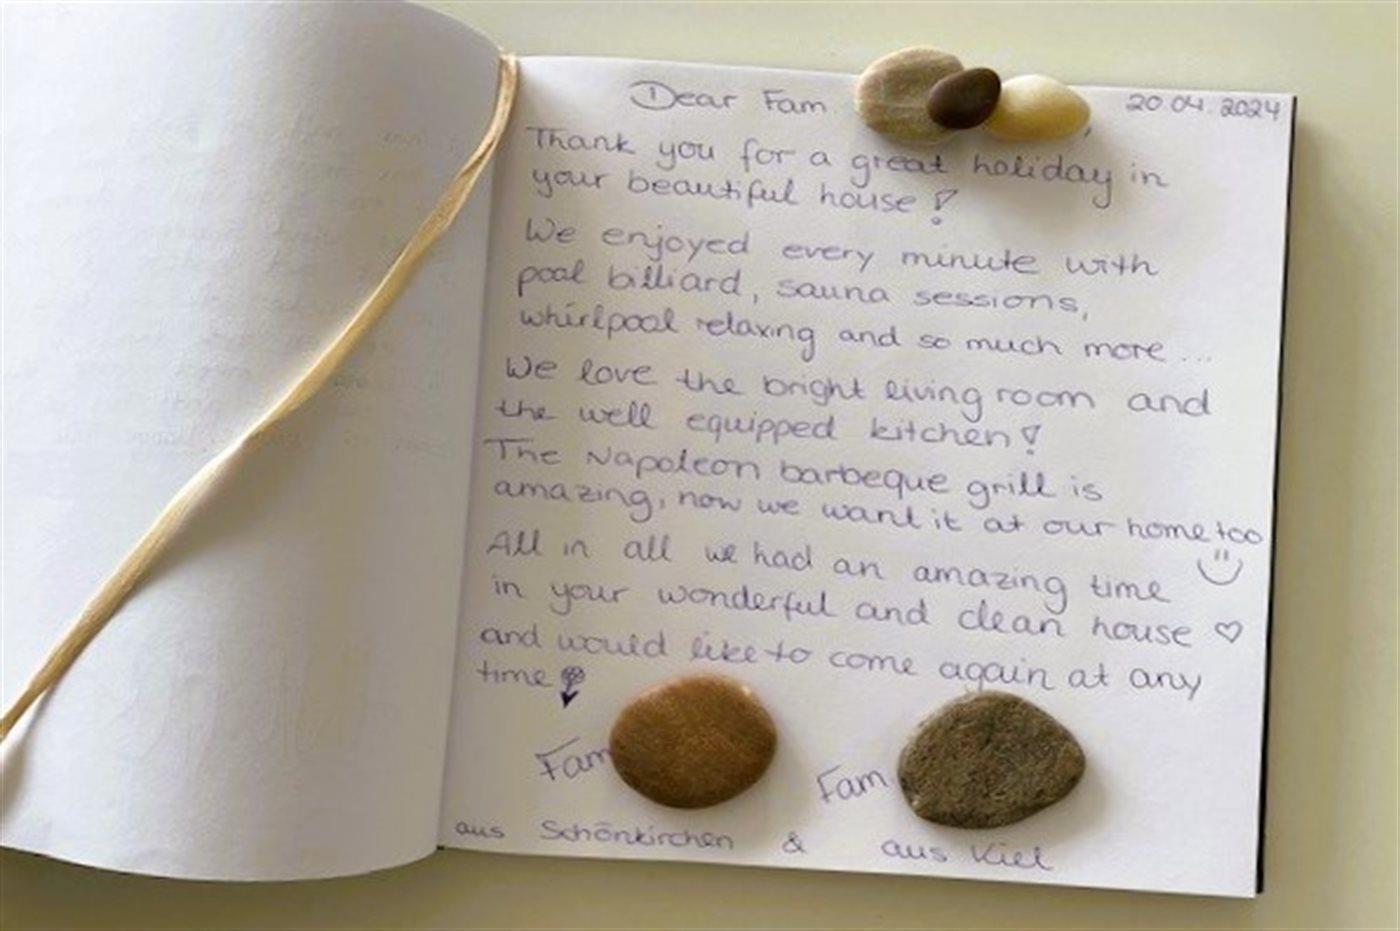 Dear Fam 20.04.2024
Thank you for a great holiday in
your beautiful house!
We enjoyed every minute with
pool billiard, sauna sessions,
whirlpool relaxing and so much more...
We love the bright living room and
the well equipped kitchen!
The Napoleon barbeque grill is
amazing, now we want it at our home too
All in all we had an amazing time
in your wonderful and clean house ♡
and would like to come again at any
time
Fam Fam
aus Schönkirchen & aus Kiel